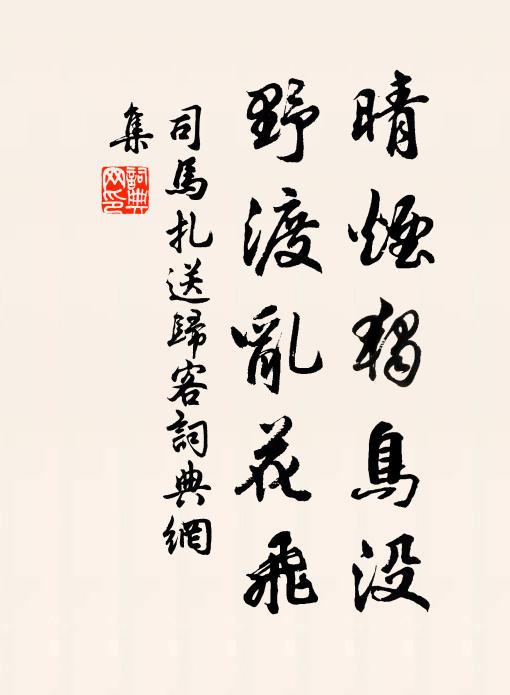 晴煙獨鳥没
野渡亂花飛
司馬扎送歸客詞典網
集
詞典
网印